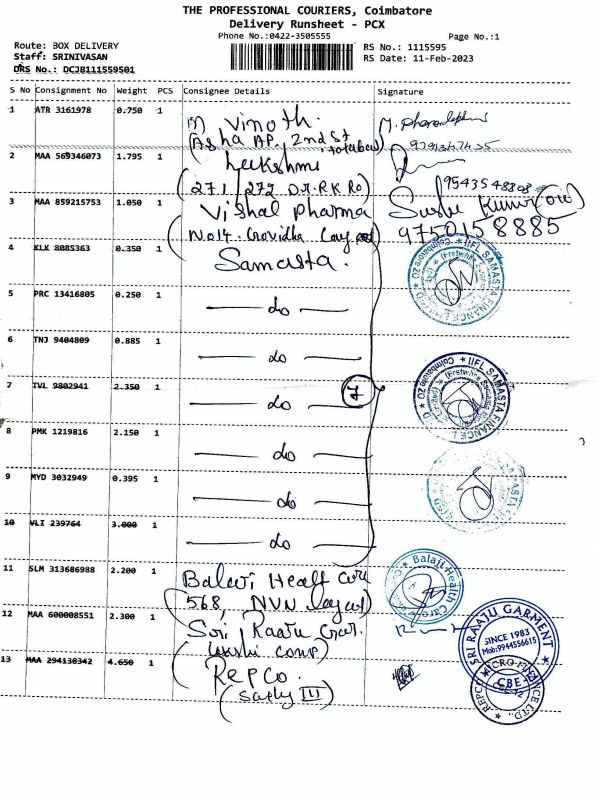 THE PROFESSIONAL COURIERS, Coimbatore
Delivery Runsheet - PCX
Phone No.:0422-3505555
Page No.:1
Route: BOX DELIVERY
RS No.: 1115595
Staff: SRINIVASAN
RS Date: 11-Feb-2023
DRS No.: DCJB111559501
S No Consignment No Weight PCS Consignee Details Signature
1 ATR 3161978 0.750 1
M Vinoth.
2nd St
2 MAA 569346073 1.795 1
Lekshmi
(271/272 D.B.R.K Ro)
9543548308
3 MAA 859215753 1.050 1
Vishal Pharma
(No14. Govidha Layout)
9750158885
4 KLX 8085363 0.350 1
Samasta.
IIFL SAMASTA FINANCE L
Coimbatore20
5 PRC 13416805 0.250 1
— do —
6 TNJ 9404809 0.885 1
— do —
7 TVL 9802941 2.350 1
— do —
7
IIFL SAMASTA FINANCE L
Coimbatore20
8 PMK 1219816 2.150 1
— do —
9 MYD 3032949 0.395 1
— do —
10 VLI 239764 3.000 1
— do —
11 SLM 313686988 2.200 1
Balavi Healt Care
(568, NVN Layout)
Balaji Health Care
12 MAA 600008551 2.300 1
Sri Raatu Gar.
SRI RAATU GARMENT
SINCE 1983
Mob:9944556615
CBE
13 MAA 294138342 4.650 1
REPCO
(Sathy III)
REPCO MICRO-FINANCE LTD.,